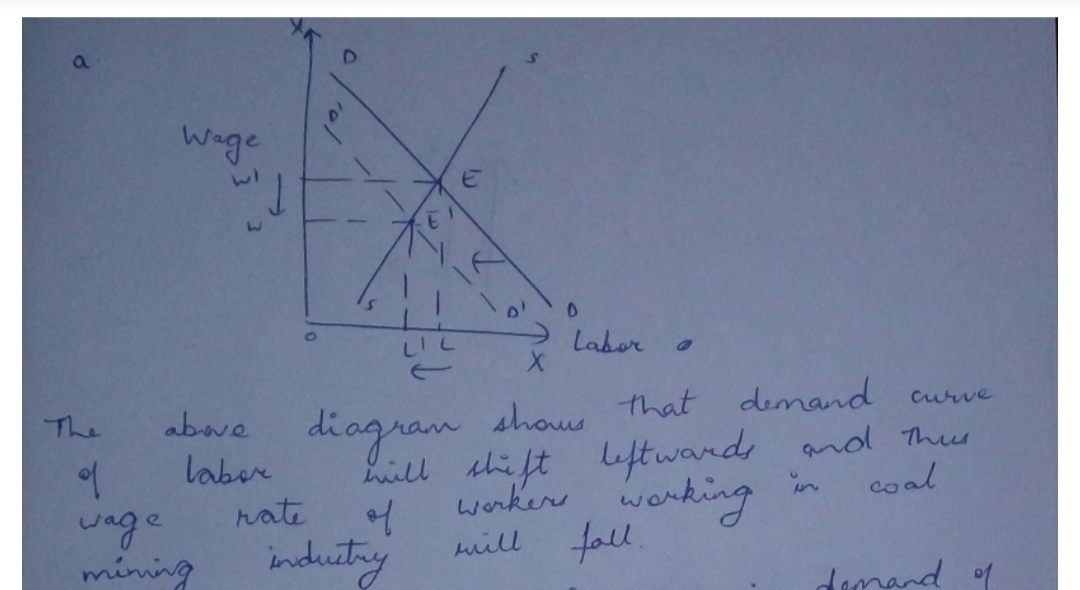 a
Y
D
S
D'
Wage
W'
E
W
E'
S
D'
D
O
L' L
X
Labor
The above diagram shows that demand curve
of labor will shift leftwards and thus
wage rate of workers working in coal
mining industry will fall.
demand of